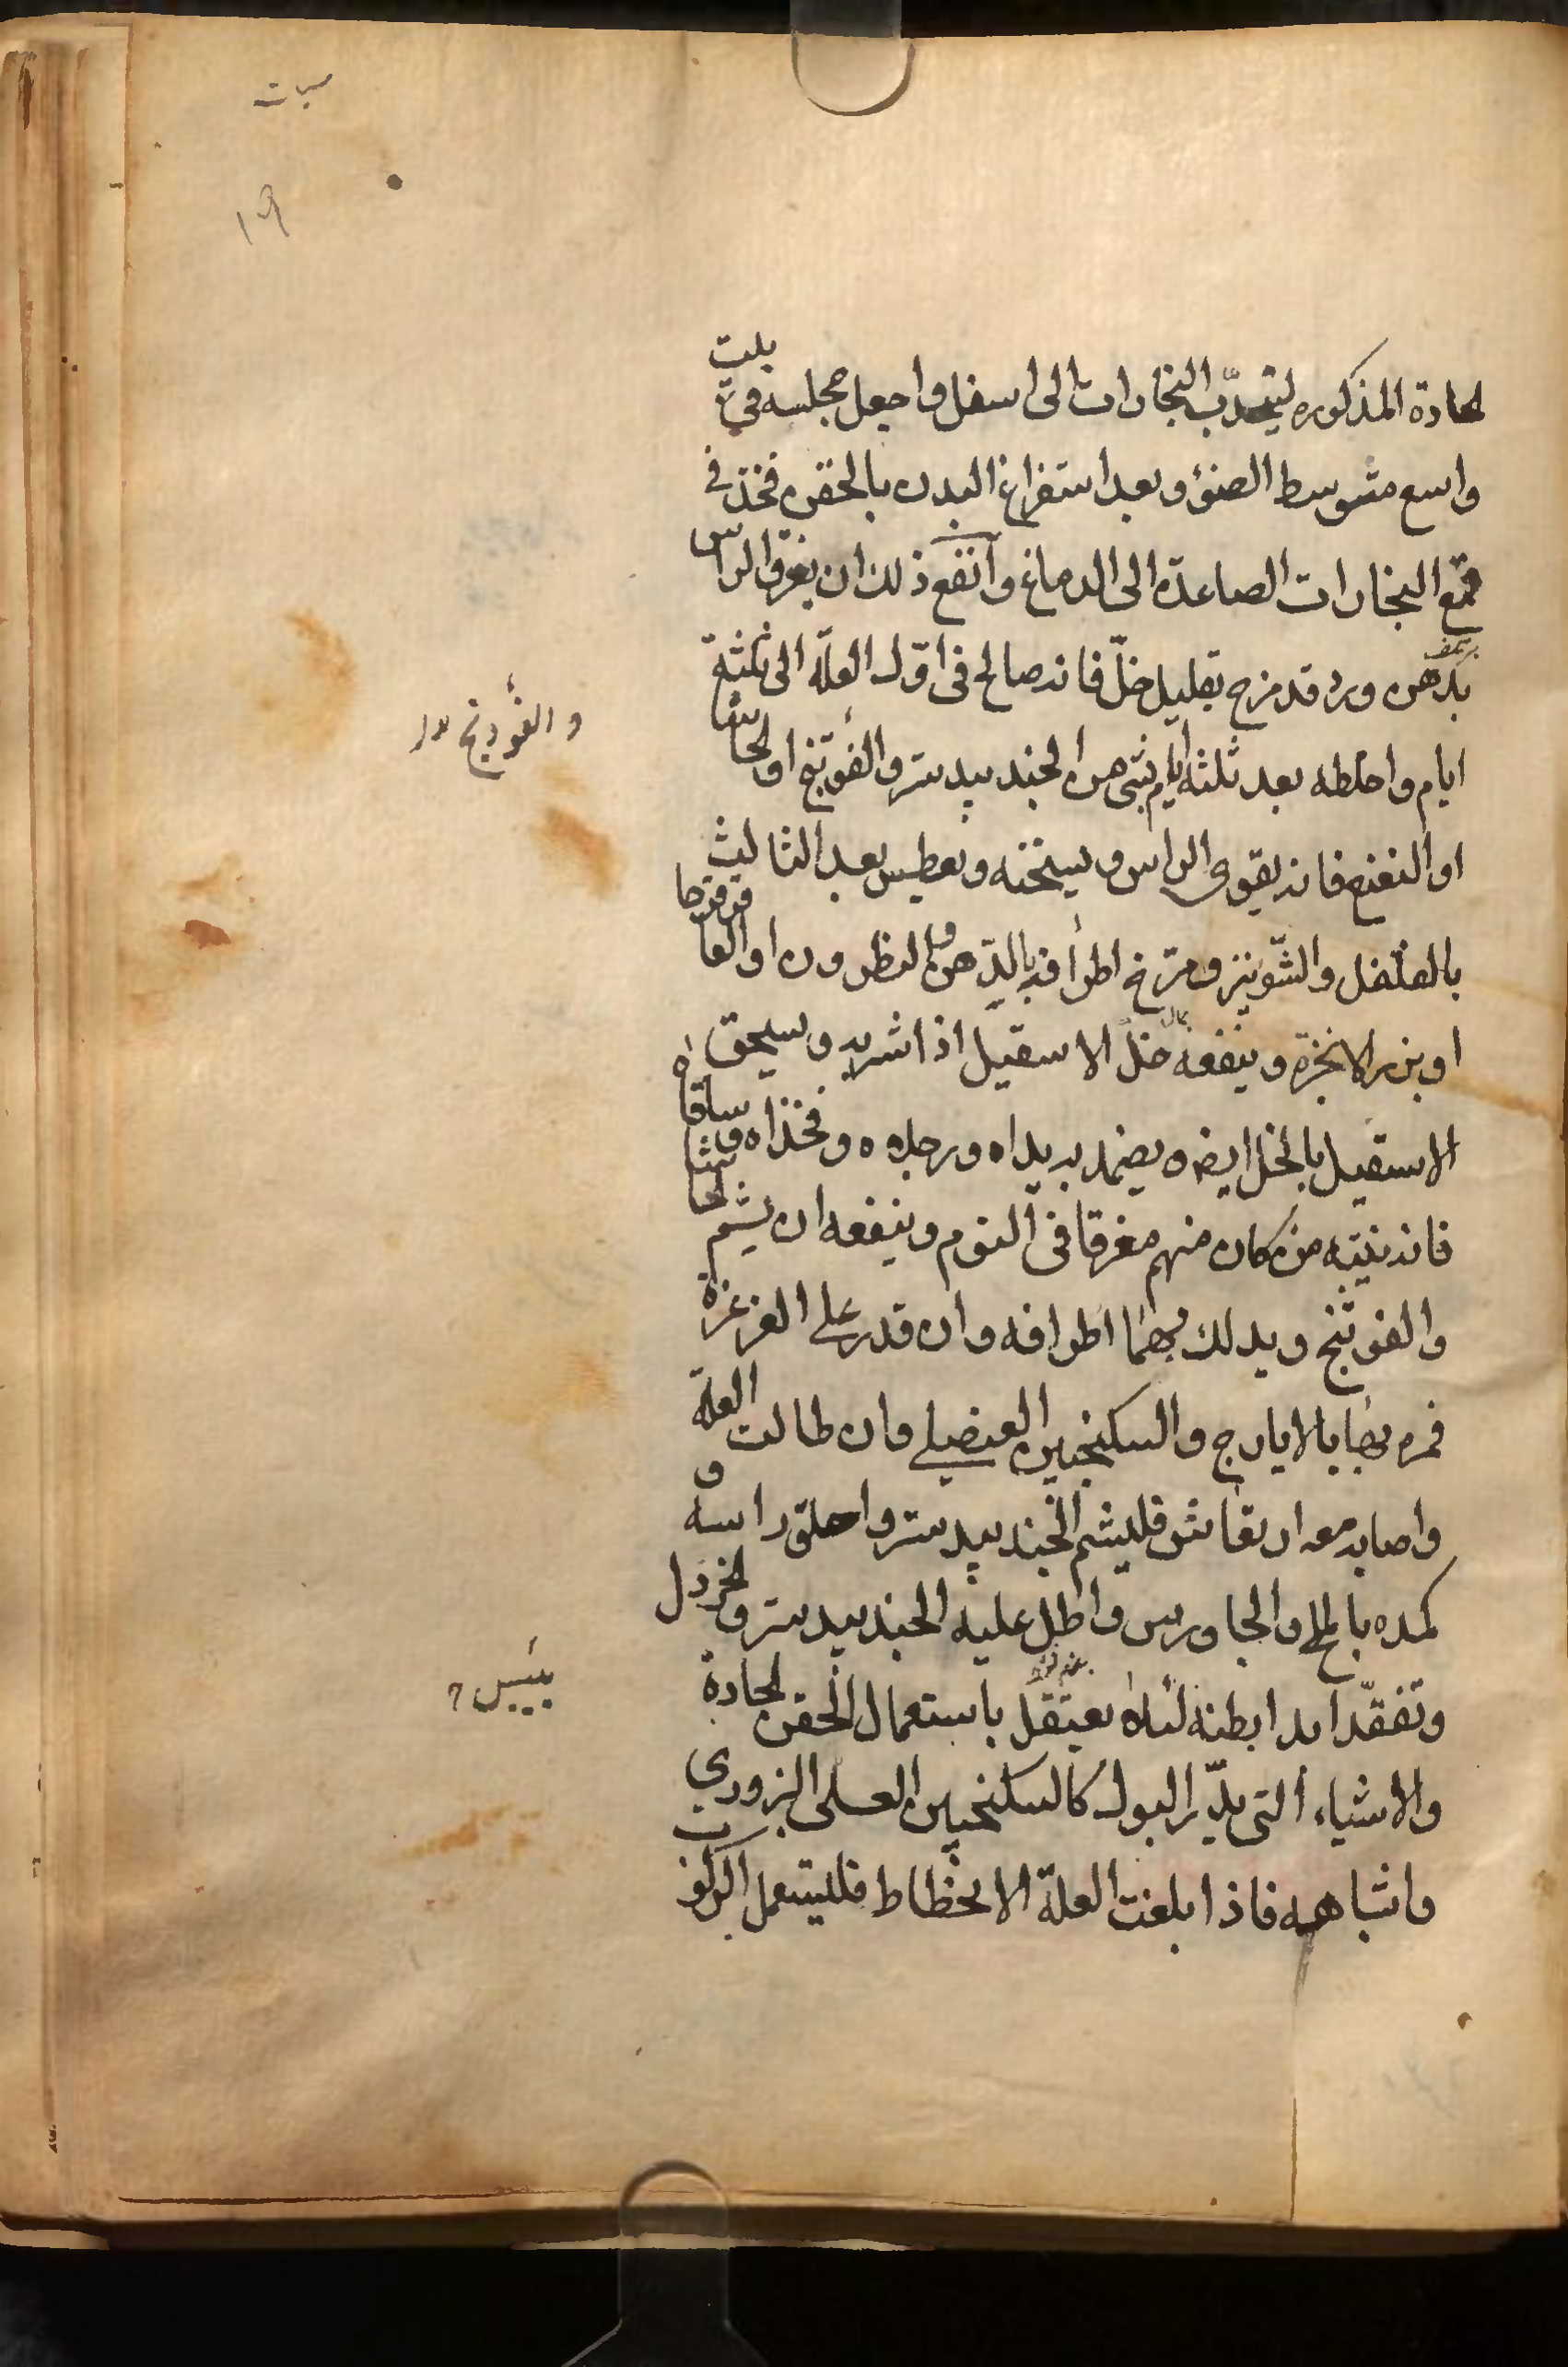 سبات
۱۹
الحادة المذكوره ليتحدّب البخارات الى اسفل واجعل مجلسه في بيت
واسع متوسط الضوء وبعد استفراغ البدن بالحقن فخذ في
قمع البخارات الصاعدة الى الدماغ وانفع ذلك ان يغرق الراس
بدهن ورد قد مزج بقليل خلّ فانه صالح في اوّل العلّة الى ثلثة
ايام واخلطه بعد ثلثة ايام بشى من الجندبيدستر والفوتنج او الحاشا
والفودنج
او النعنع فانه يقوى الراس ويسخنه ويعطيس بعد الثالث
بالفلفل والشّونيز ومرّخ اطرافه بالدّهن والنطرون او العاقرقرحا
او بزر الانجرة وينفعه خلّ الاسقيل اذا شربه وسيحق
الاسقيل بالخل ايضا ويضمد به يداه ورجلاه وفخذاه وساقاه
فانه ينبّه من كان منهم مغرقا في النوم وينفعه ان يشم الحاشا
والفوتنج ويدلك بهما اطرافه وان قدر على الغرغرة
فمره بها بالايارج والسكنجبين العنصلي وان طالت العلّة
واصابه معه ارتعاش فليشم الجندبيدستر واحلق راسه و
كمده بالملح والجاورس واطل عليه الجندبيدستر والخردل
وتفقّد ابدا بطنه لئلا يعتقل باستعمال الحقن الحادة
يبيس
والاشياء التى يدّر البول كالسكنجبين العسلى البزوري
واشباهه فاذا بلغت العلّة الانحطاط فليستعمل الركوب